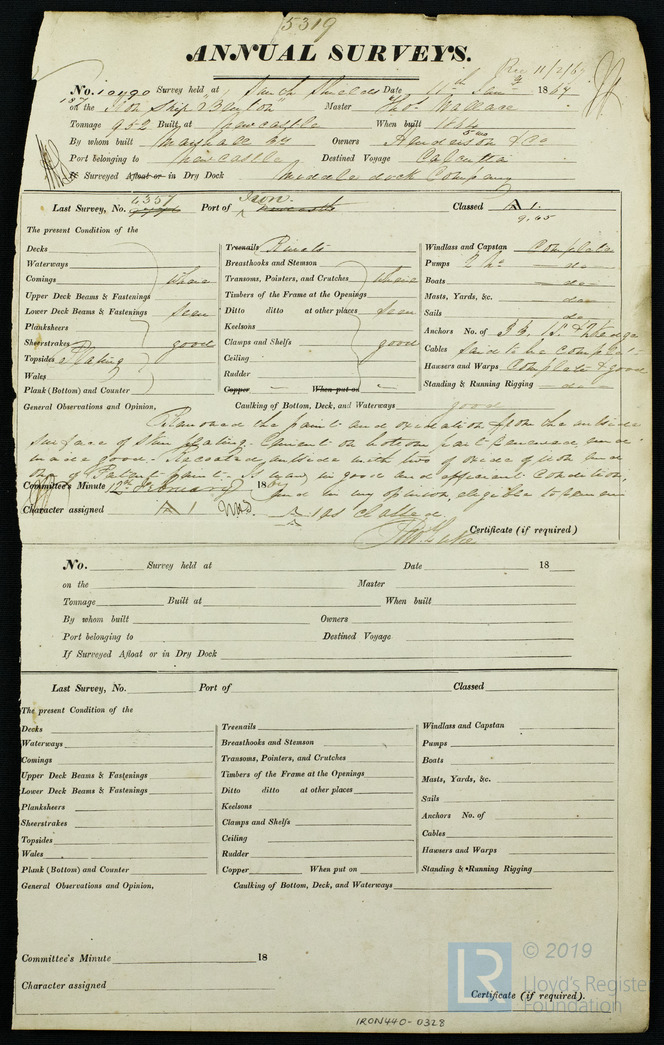 5319
ANNUAL SURVEYS.
Rec 11/2/67
No. 10990 Survey held at South Shields Date 11th 1867
on the Iron Ship Master Thos. Wallace
Tonnage 952 Built at Newcastle When built 1864
5 mo
By whom built Marshall Owners Henderson & Co
Port belonging to Newcastle Destined Voyage Calcutta
If Surveyed Afloat or in Dry Dock Middle dock Company
6357 Iron.
Last Survey, No. Port of Newcastle Classed A 1.
9.65
The present Condition of the
Decks
Waterways
Comings where
Upper Deck Beams & Fastenings
Lower Deck Beams & Fastenings seen
Planksheers
Sheerstrakes good
Topsides & Plating
Wales
Plank (Bottom) and Counter
Treenails Rivets
Breasthooks and Stemson
Transoms, Pointers, and Crutches where
Timbers of the Frame at the Openings
Ditto ditto at other places seen
Keelsons
Clamps and Shelfs good
Ceiling
Rudder
Copper - When put on -
Windlass and Capstan Complete
Pumps 2 No - do -
Boats - do -
Masts, Yards, &c. - do -
Sails - do -
Anchors No. of 3 B, 1 S. & 2 Kedges
Cables said to be complete
Hawsers and Warps Complete & good
Standing & Running Rigging - do -
General Observations and Opinion, Caulking of Bottom, Deck, and Waterways good
Removed the paint and oxidation from the outside
surface of Plating. Cement on bottom part Renewed, and
made good. Recoated outside with two of oxide of iron and
one of Patent paint. - Is now, in good and efficient Condition,
Committee's Minute 12th February 1867
and in my opinion, eligible to remain
Character assigned A 1
A 1 as classed.
Certificate (if required)
No. Survey held at Date 18
on the Master
Tonnage Built at When built
By whom built Owners
Port belonging to Destined Voyage
If Surveyed Afloat or in Dry Dock
Last Survey, No. Port of Classed
The present Condition of the
Decks
Waterways
Comings
Upper Deck Beams & Fastenings
Lower Deck Beams & Fastenings
Planksheers
Sheerstrakes
Topsides
Wales
Plank (Bottom) and Counter
Treenails
Breasthooks and Stemson
Transoms, Pointers, and Crutches
Timbers of the Frame at the Openings
Ditto ditto at other places
Keelsons
Clamps and Shelfs
Ceiling
Rudder
Copper When put on
Windlass and Capstan
Pumps
Boats
Masts, Yards, &c.
Sails
Anchors No. of
Cables
Hawsers and Warps
Standing & Running Rigging
General Observations and Opinion, Caulking of Bottom, Deck, and Waterways
Committee's Minute 18
Character assigned
Certificate (if required).
LR © 2019
Lloyd's Register
Foundation
IRON440-0328